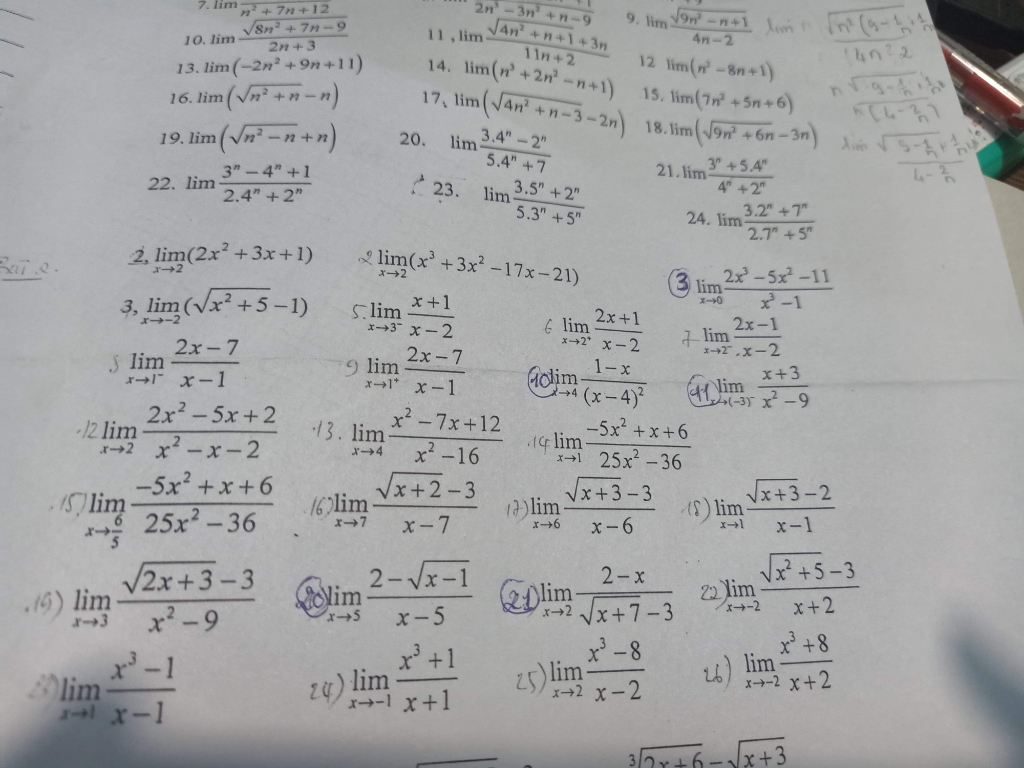 7. lim n² + 7n + 12
2n³ − 3n² + n − 9
9. lim √(9n² − n + 1) / (4n − 2)
10. lim √(8n² + 7n − 9) / (2n + 3)
11, lim (√(4n² + n + 1) + 3n) / (11n + 2)
12 lim(n³ − 8n + 1)
13. lim(−2n² + 9n + 11)
14. lim(n³ + 2n² − n + 1)
15. lim(7n² + 5n + 6)
16. lim(√(n² + n) − n)
17, lim(√(4n² + n − 3) − 2n)
18. lim(√(9n² + 6n) − 3n)
19. lim(√(n² − n) + n)
20. lim (3.4ⁿ − 2ⁿ) / (5.4ⁿ + 7)
21. lim (3ⁿ + 5.4ⁿ) / (4ⁿ + 2ⁿ)
22. lim (3ⁿ − 4ⁿ + 1) / (2.4ⁿ + 2ⁿ)
23. lim (3.5ⁿ + 2ⁿ) / (5.3ⁿ + 5ⁿ)
24. lim (3.2ⁿ + 7ⁿ) / (2.7ⁿ + 5ⁿ)
2, lim x→2 (2x² + 3x + 1)
2 lim x→2 (x³ + 3x² − 17x − 21)
3 lim x→0 (2x³ − 5x² − 11) / (x³ − 1)
3, lim x→−2 (√(x² + 5) − 1)
5. lim x→3⁻ (x + 1) / (x − 2)
6 lim x→2⁺ (2x + 1) / (x − 2)
7 lim x→2⁻ (2x − 1) / (x − 2)
8 lim x→1⁻ (2x − 7) / (x − 1)
9 lim x→1⁺ (2x − 7) / (x − 1)
10 lim x→4 (1 − x) / (x − 4)²
11 lim x→(−3)⁻ (x + 3) / (x² − 9)
12 lim x→2 (2x² − 5x + 2) / (x² − x − 2)
13. lim x→4 (x² − 7x + 12) / (x² − 16)
14 lim x→1 (−5x² + x + 6) / (25x² − 36)
15) lim x→6/5 (−5x² + x + 6) / (25x² − 36)
16) lim x→7 (√(x + 2) − 3) / (x − 7)
17) lim x→6 (√(x + 3) − 3) / (x − 6)
18) lim x→1 (√(x + 3) − 2) / (x − 1)
19) lim x→3 (√(2x + 3) − 3) / (x² − 9)
20 lim x→5 (2 − √(x − 1)) / (x − 5)
21 lim x→2 (2 − x) / (√(x + 7) − 3)
22) lim x→−2 (√(x² + 5) − 3) / (x + 2)
lim x→1 (x³ − 1) / (x − 1)
24) lim x→−1 (x³ + 1) / (x + 1)
25) lim x→2 (x³ − 8) / (x − 2)
26) lim x→−2 (x³ + 8) / (x + 2)
∛(2x + 6) − √(x + 3)